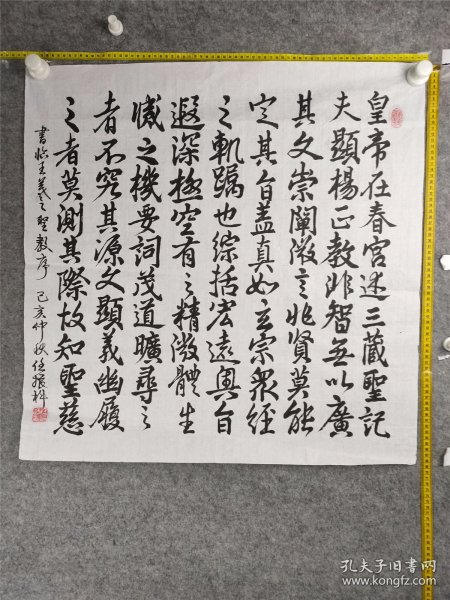 皇帝在春宫述三藏聖記
夫顯楊正教非智無以廣
其文崇闡微言非賢莫能
定其旨盖真如者玄宗衆經
之軌躅也綜括宏遠奥旨
遐深極空有之精微體生
滅之機要詞茂道曠尋之
者不究其源文顯義幽履
之者莫測其際故知聖慈
書临王羲之聖教序 己亥仲秋任振科
孔夫子旧书网
www.kongfz.com